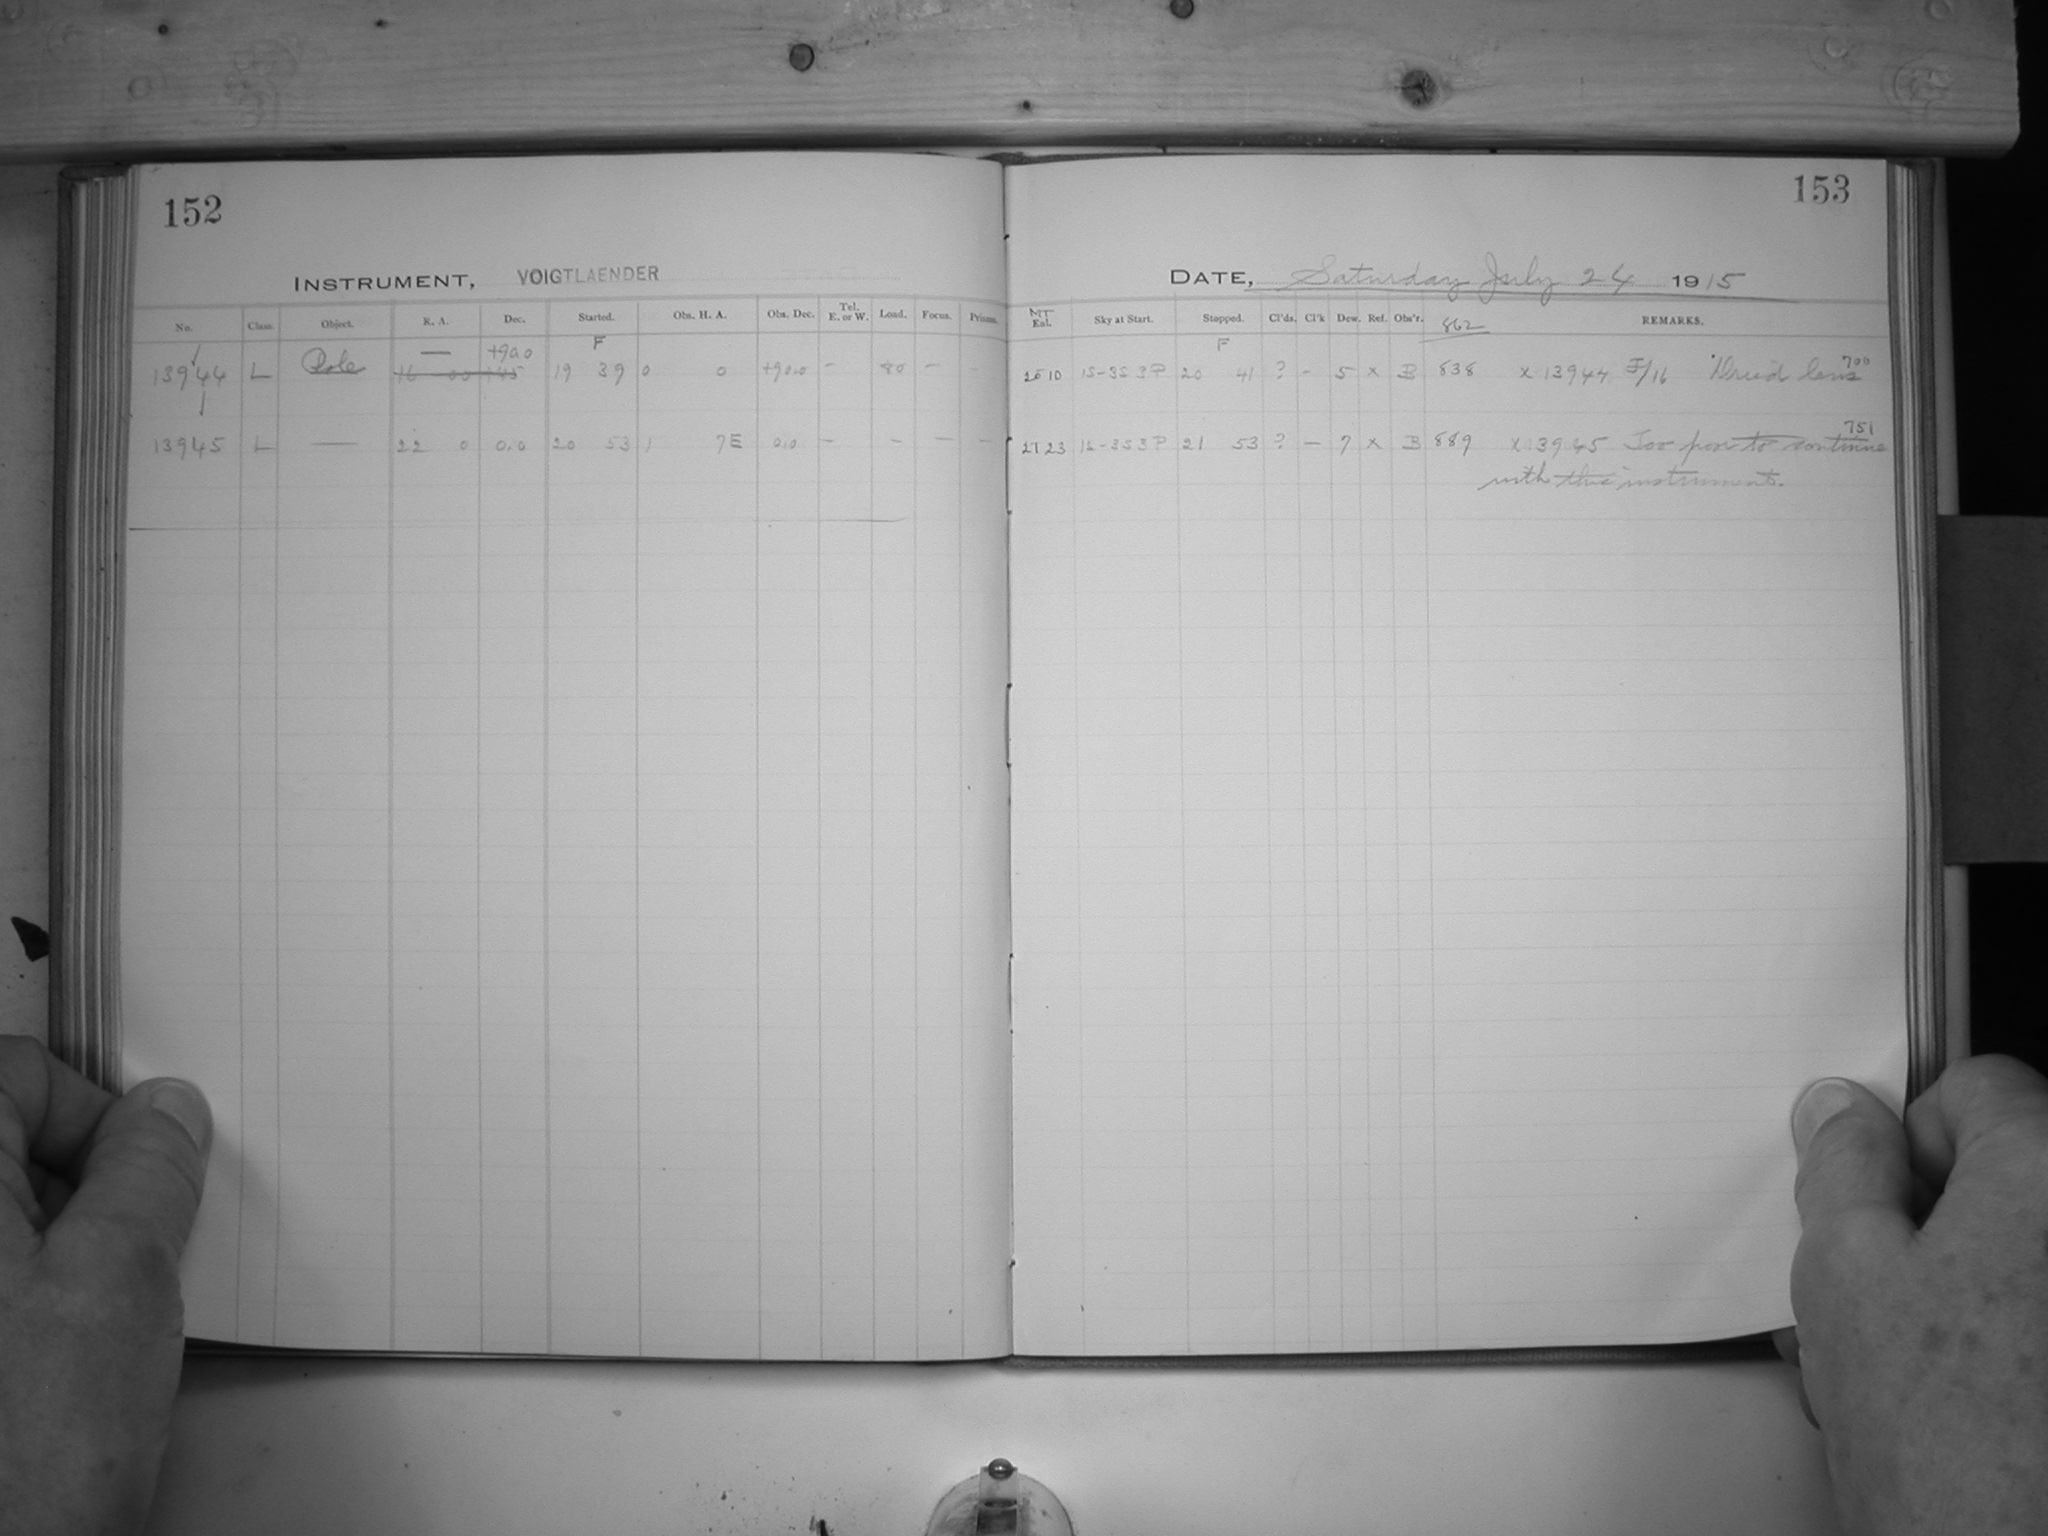 152
153
INSTRUMENT, VOIGTLAENDER
DATE, Saturday July 24 1915
No. Class. Object. R. A. Dec. Started. Obs. H. A. Obs. Dec. Tel. E. or W. Load. Focus. Prisms.
MT Eal. Sky at Start. Stopped. Cl'ds. Cl'k Dew. Ref. Obs'r. 862 REMARKS.
— +90.0 F
F 700
13944 L Pole 16 00 +45 19 39 0 0 +90.0 – 80 – –
10 15-35 3P 20 41 ? – 5 x B 838 x 13944 F/16 lens
751
13945 L — 22 0 0.0 20 53 1 7E 0.0 – – – –
2123 15-35 3P 21 53 ? – 7 x B 889 x 13945 Too poor to continue
with this instrument.